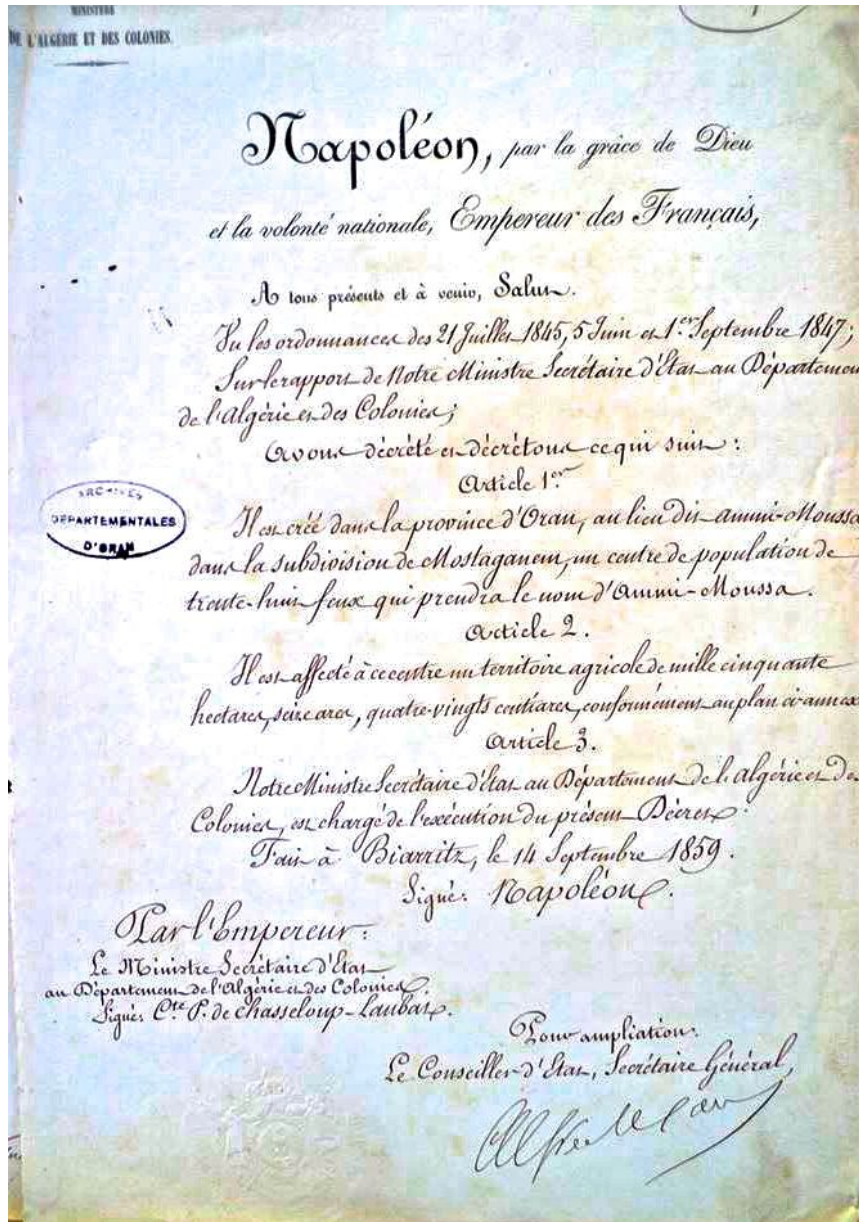 MINISTÈRE
DE L'ALGÉRIE ET DES COLONIES.
Napoléon, par la grâce de Dieu
et la volonté nationale, Empereur des Français,
A tous présents et à venir, Salut.
Vu les ordonnances des 21 Juillet 1845, 5 Juin et 1.er Septembre 1847;
Sur le rapport de Notre Ministre Secrétaire d'Etat au Département
de l'Algérie et des Colonies;
Avons décrété et décrétons ce qui suit:
Article 1er
Il est créé dans la province d'Oran, au lieu dit Ammi-Moussa
dans la subdivision de Mostaganem, un centre de population de
trente-huit feux qui prendra le nom d'Ammi-Moussa.
Article 2.
Il est affecté à ce centre un territoire agricole de mille cinquante
hectares, seize ares, quatre-vingts centiares, conformément au plan ci-annex
Article 3.
Notre Ministre Secrétaire d'Etat au Département de l'Algérie et des
Colonies, est chargé de l'exécution du présent Décret.
Fait à Biarritz, le 14 Septembre 1859.
Signé: Napoléon.
Par l'Empereur:
Le Ministre Secrétaire d'Etat
au Département de l'Algérie et des Colonies.
Signé: Cte P. de Chasseloup-Laubat.
Pour ampliation:
Le Conseiller d'Etat, Secrétaire Général,
ARCHIVES
DEPARTEMENTALES
D'ORAN